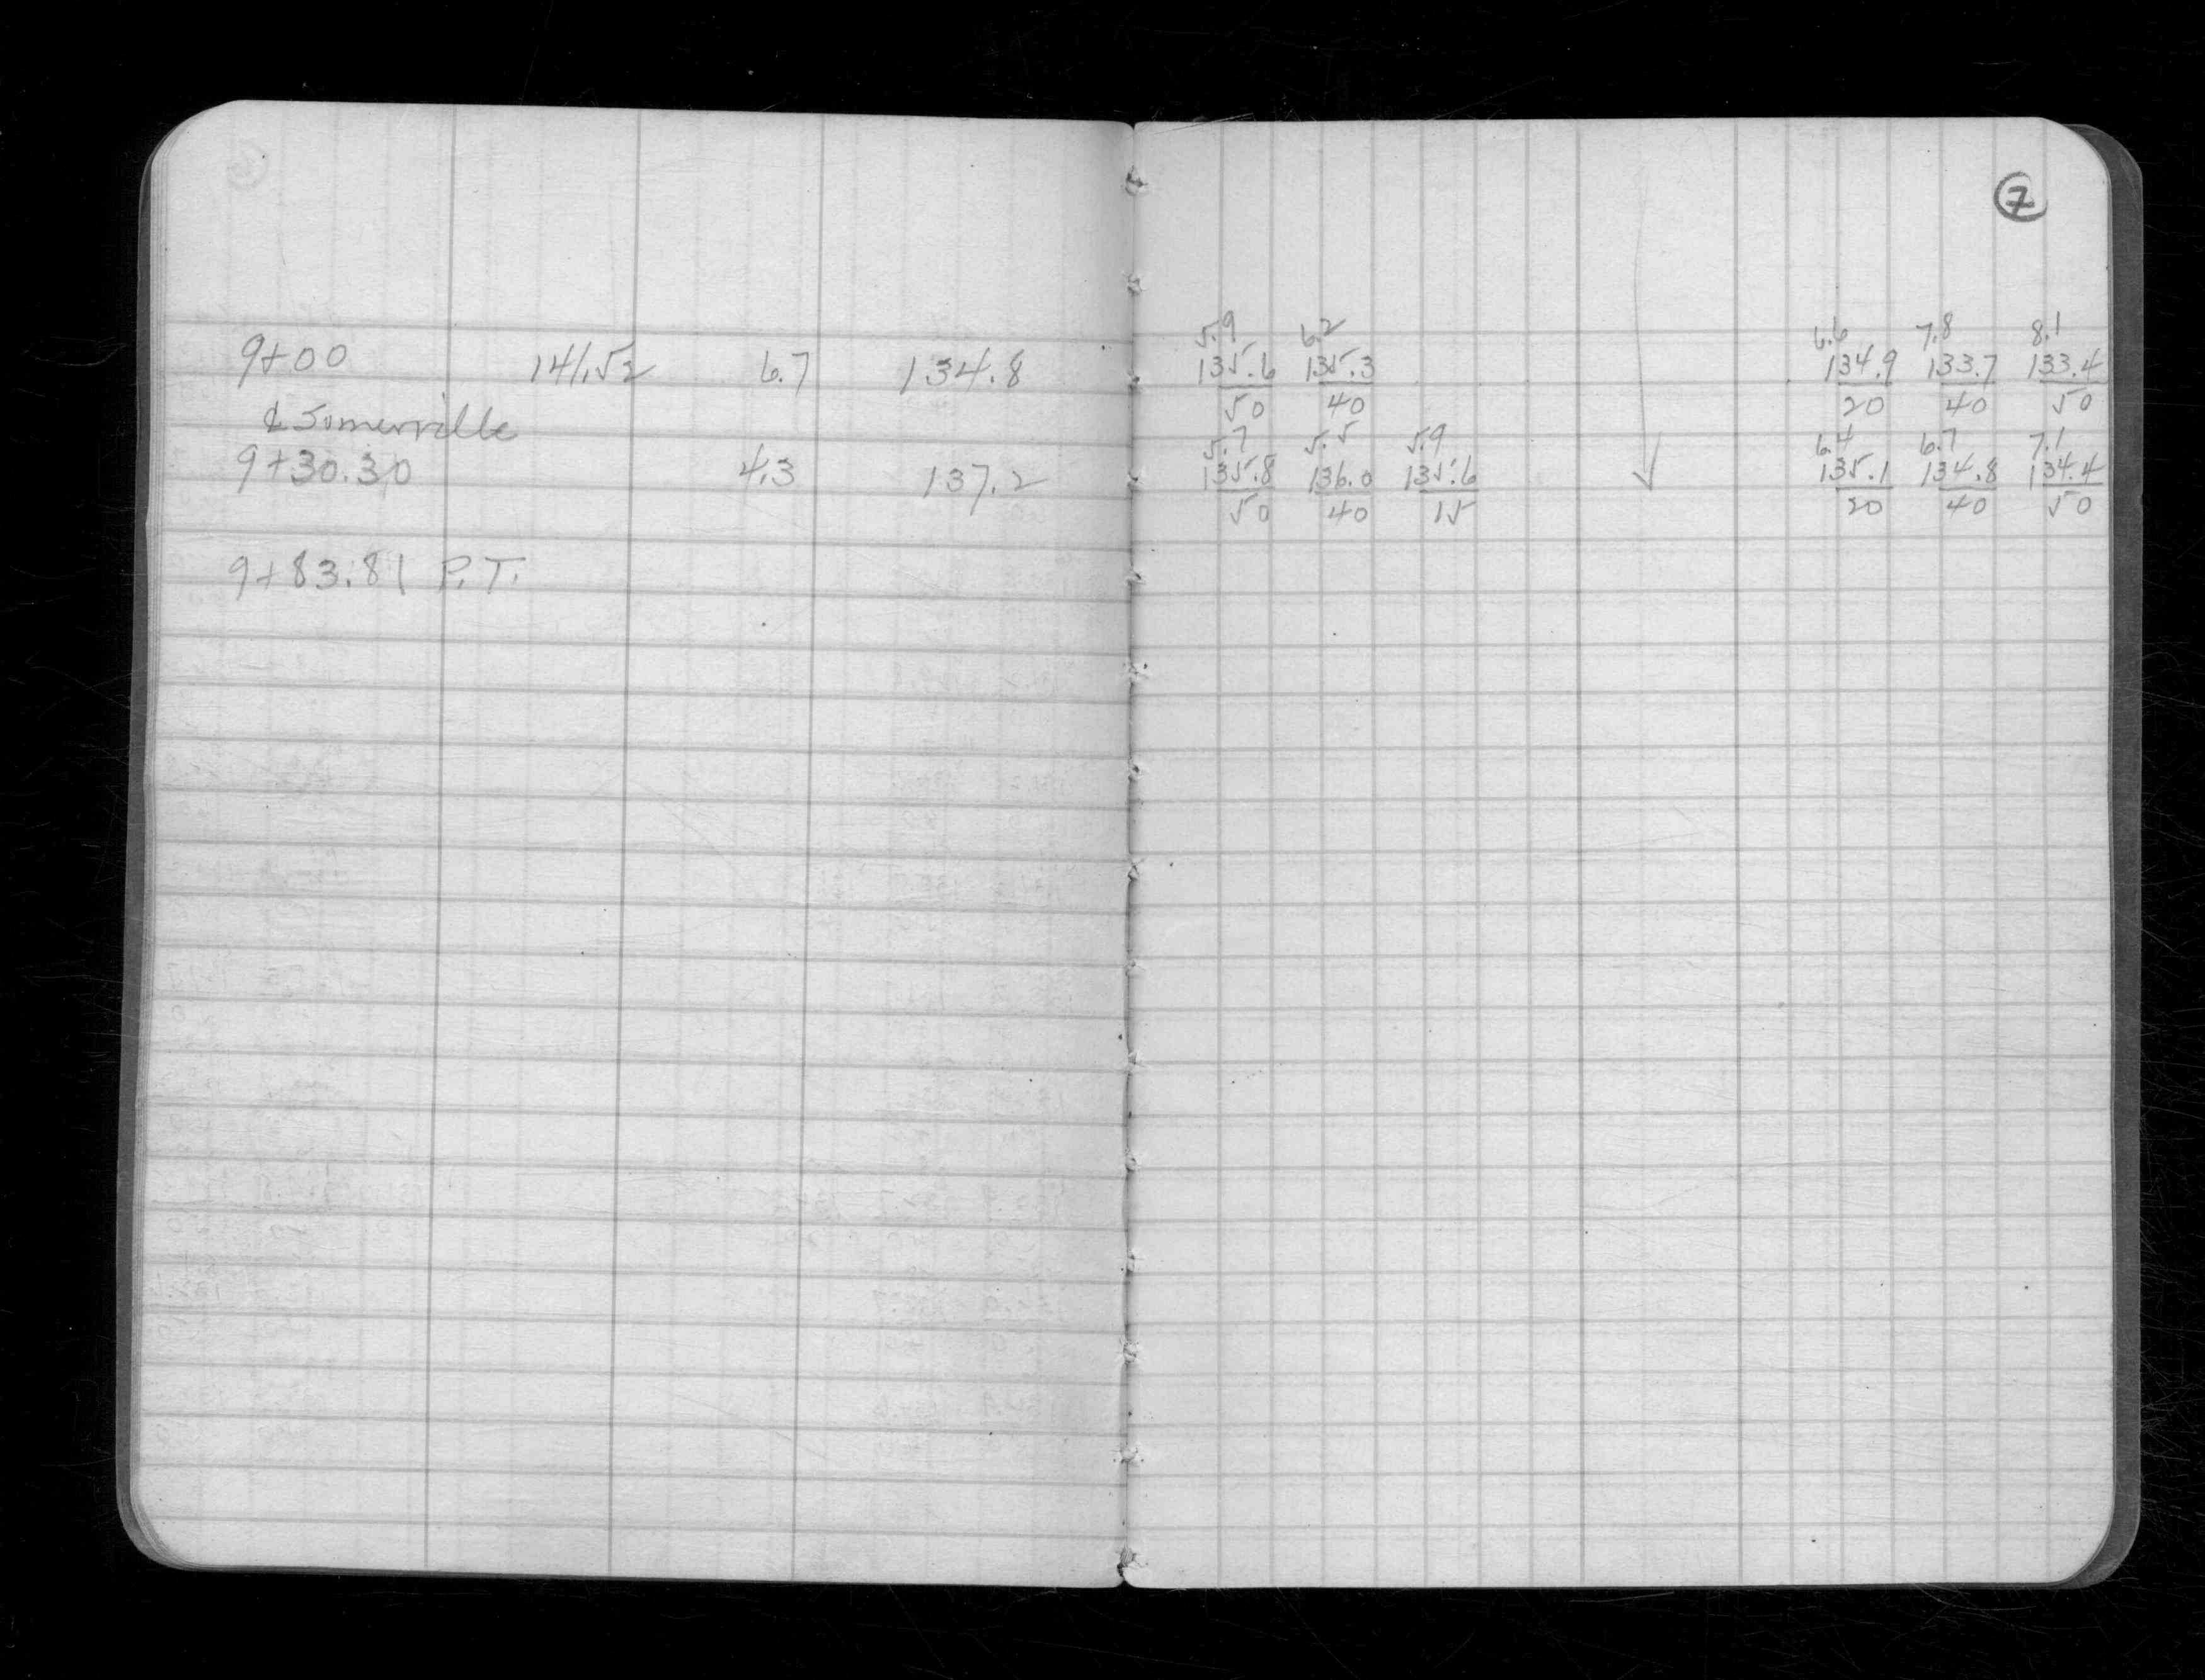 7
5.9 6.2 6.6 7.8 8.1
9+00 141.52 6.7 134.8 135.6 135.3 134.9 133.7 133.4
50 40 20 40 50
℄ Somerville
5.7 5.5 5.9 6.4 6.7 7.1
9+30.30 4.3 137.2 135.8 136.0 135.6 135.1 134.8 134.4
50 40 15 20 40 50
9+83.81 P.T.